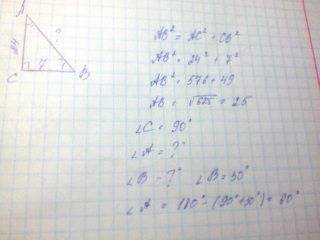 A
?
24
7
C
B
AB² = AC² + CB²
AB² = 24² + 7²
AB² = 576 + 49
AB = √625 = 25
∠C = 90°
∠A = ?
∠B - ?
∠B = 30°
∠A = 180° - (90° + 30°) = 60°